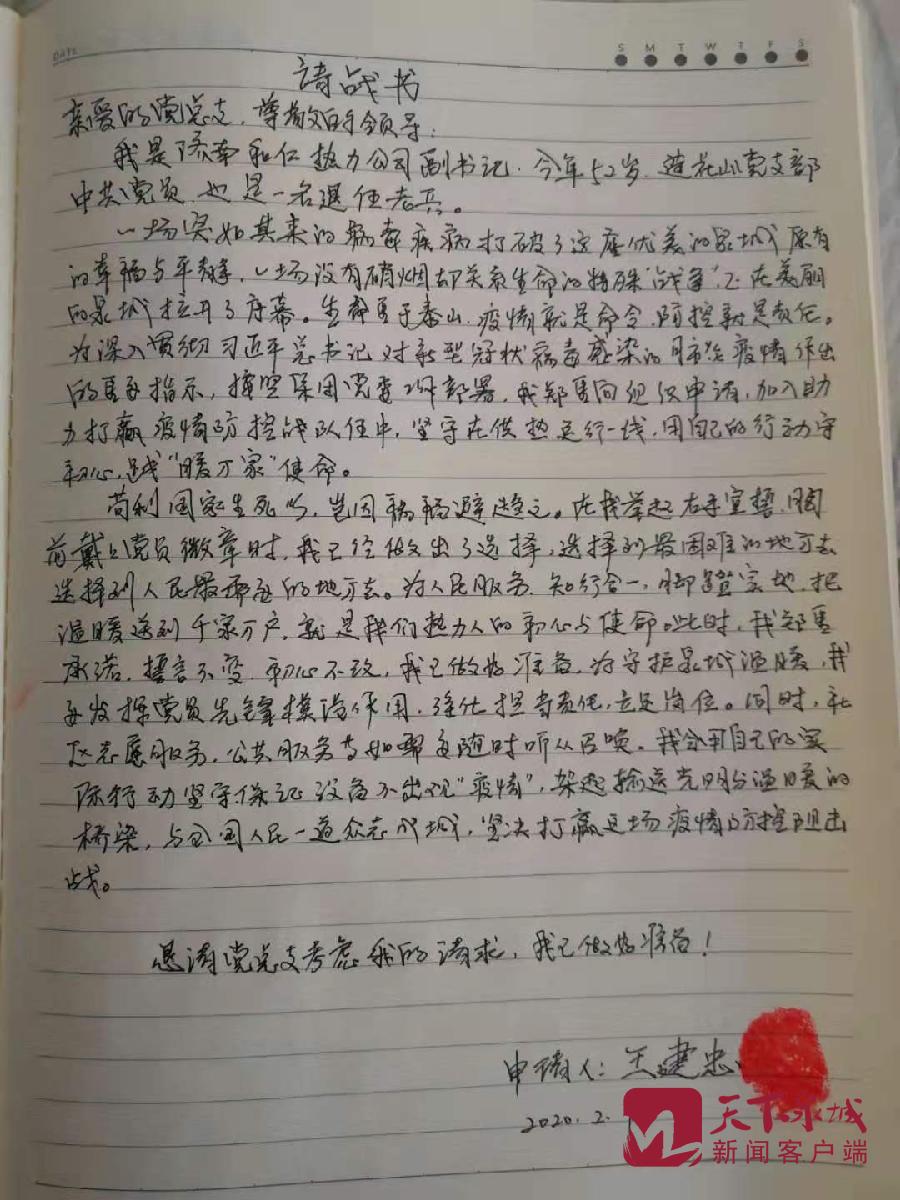 DATE
S M T W T F S
请战书
亲爱的党总支、尊敬的各领导:
我是济南和仁热力公司副书记,今年52岁,莲花山党支部
中共党员,也是一名退伍老兵。
一场突如其来的病毒疾病打破了这座优美的泉城原有
的幸福与平静,一场没有硝烟却关系生命的特殊“战争”正在美丽
的泉城拉开了序幕。生命重于泰山,疫情就是命令,防控就是责任。
为深入贯彻习近平总书记对新型冠状病毒感染的肺炎疫情作出
的重要指示,按照集团党委工作部署,我郑重向组织申请,加入助
力打赢疫情防控战队伍中,坚守在供热运行一线,用自己的行动守
初心,践“暖万家”使命。
苟利国家生死以,岂因祸福避趋之。在我举起右手宣誓,胸
前戴上党员徽章时,我已经做出了选择,选择到最困难的地方去
选择到人民最需要的地方去。为人民服务、知行合一,脚踏实地,把
温暖送到千家万户,就是我们热力人的初心与使命。此时,我郑重
承诺,誓言不变,初心不改,我已做好准备,为守护泉城温暖,我
要发挥党员先锋模范作用,强化担当责任,立足岗位。同时,社
区志愿服务,公共服务等如需要随时听从召唤,我会用自己的实
际行动坚守保证设备不出现“疫情”,架起输送光明和温暖的
桥梁,与全国人民一道众志成城,坚决打赢这场疫情防控阻击
战。
恳请党总支考虑我的请求,我已做好准备!
申请人:王建忠
2020.2.
天下泉城
新闻客户端